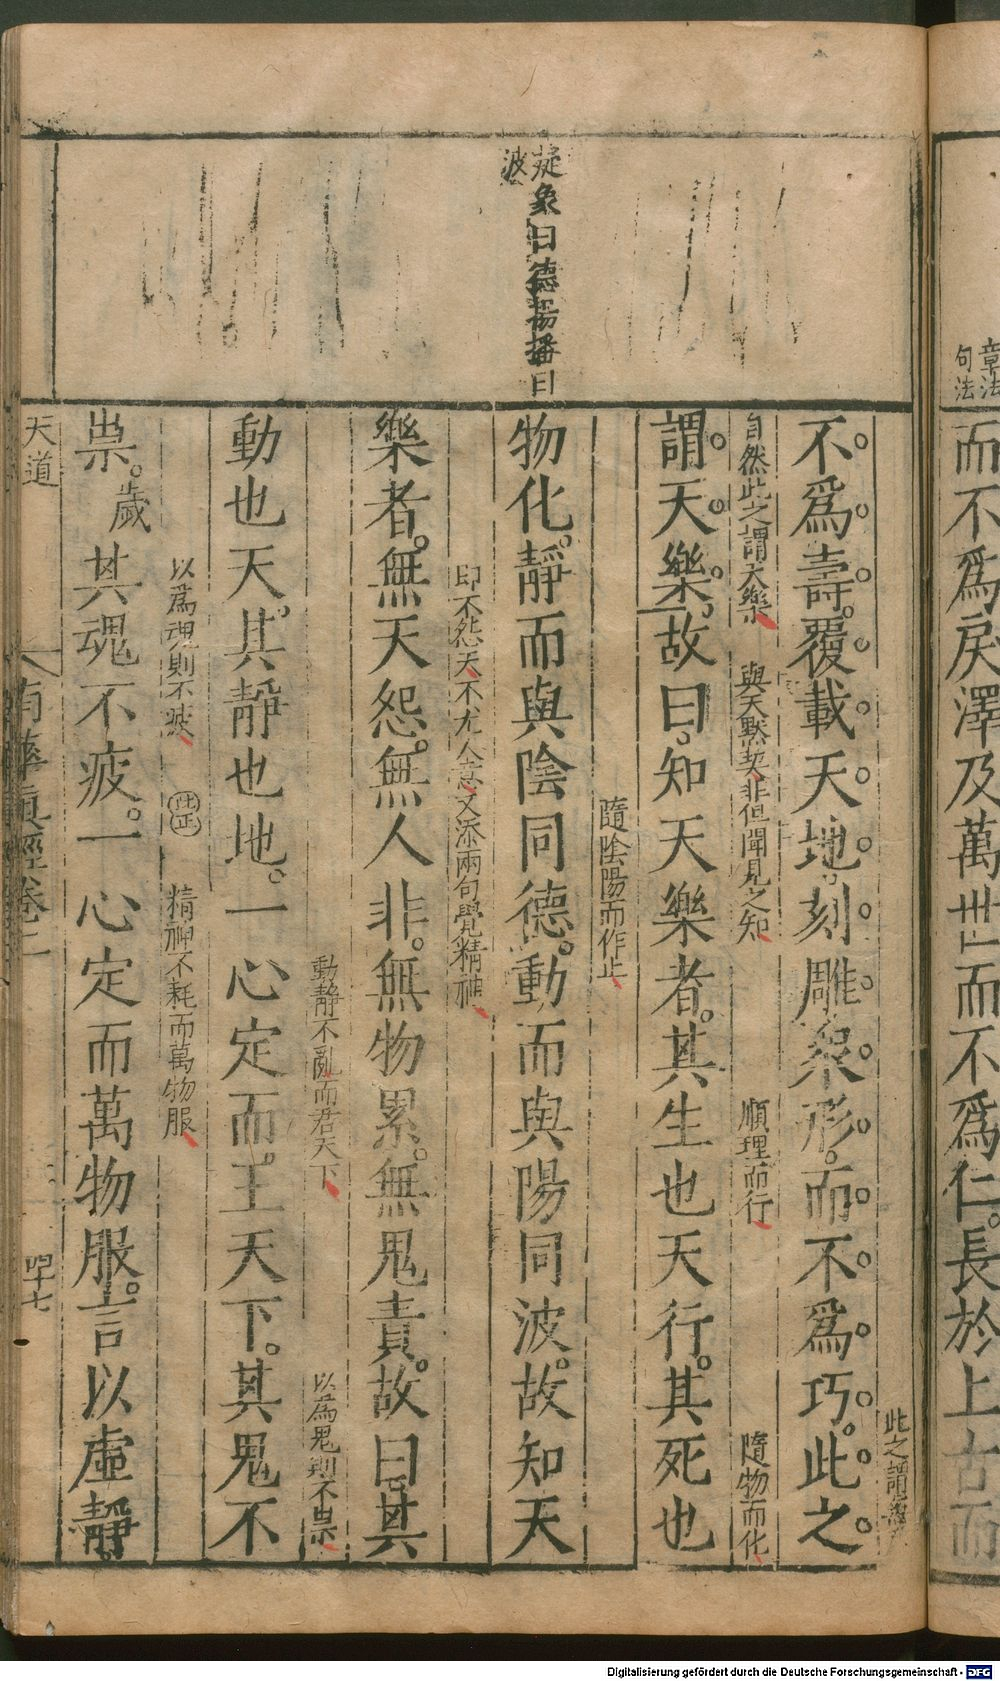 章法
句法
而不為戾澤及萬世而不為仁。長於上古而
疑象曰德揚播曰
波
此之謂
不為壽。覆載天地。刻雕眾形。而不為巧。此之
自然此之謂大樂
與天默契非但聞見之知
順理而行
隨物而化
謂天樂。故曰。知天樂者。其生也天行。其死也
隨陰陽而作止
物化。靜而與陰同德。動而與陽同波。故知天
印不怨天不尤人意又添兩句覺精神
樂者。無天怨。無人非。無物累。無鬼責。故曰。其
動靜不亂而君天下
以為鬼則不祟
動也天。其靜也地。一心定而。王天下。其鬼不
以為魂則不疲
精神不耗而萬物服
祟。歲其魂不疲。一心定而萬物服。言以虛靜。
天道
南華真經卷二
四十七
Digitalisierung gefördert durch die Deutsche Forschungsgemeinschaft - DFG